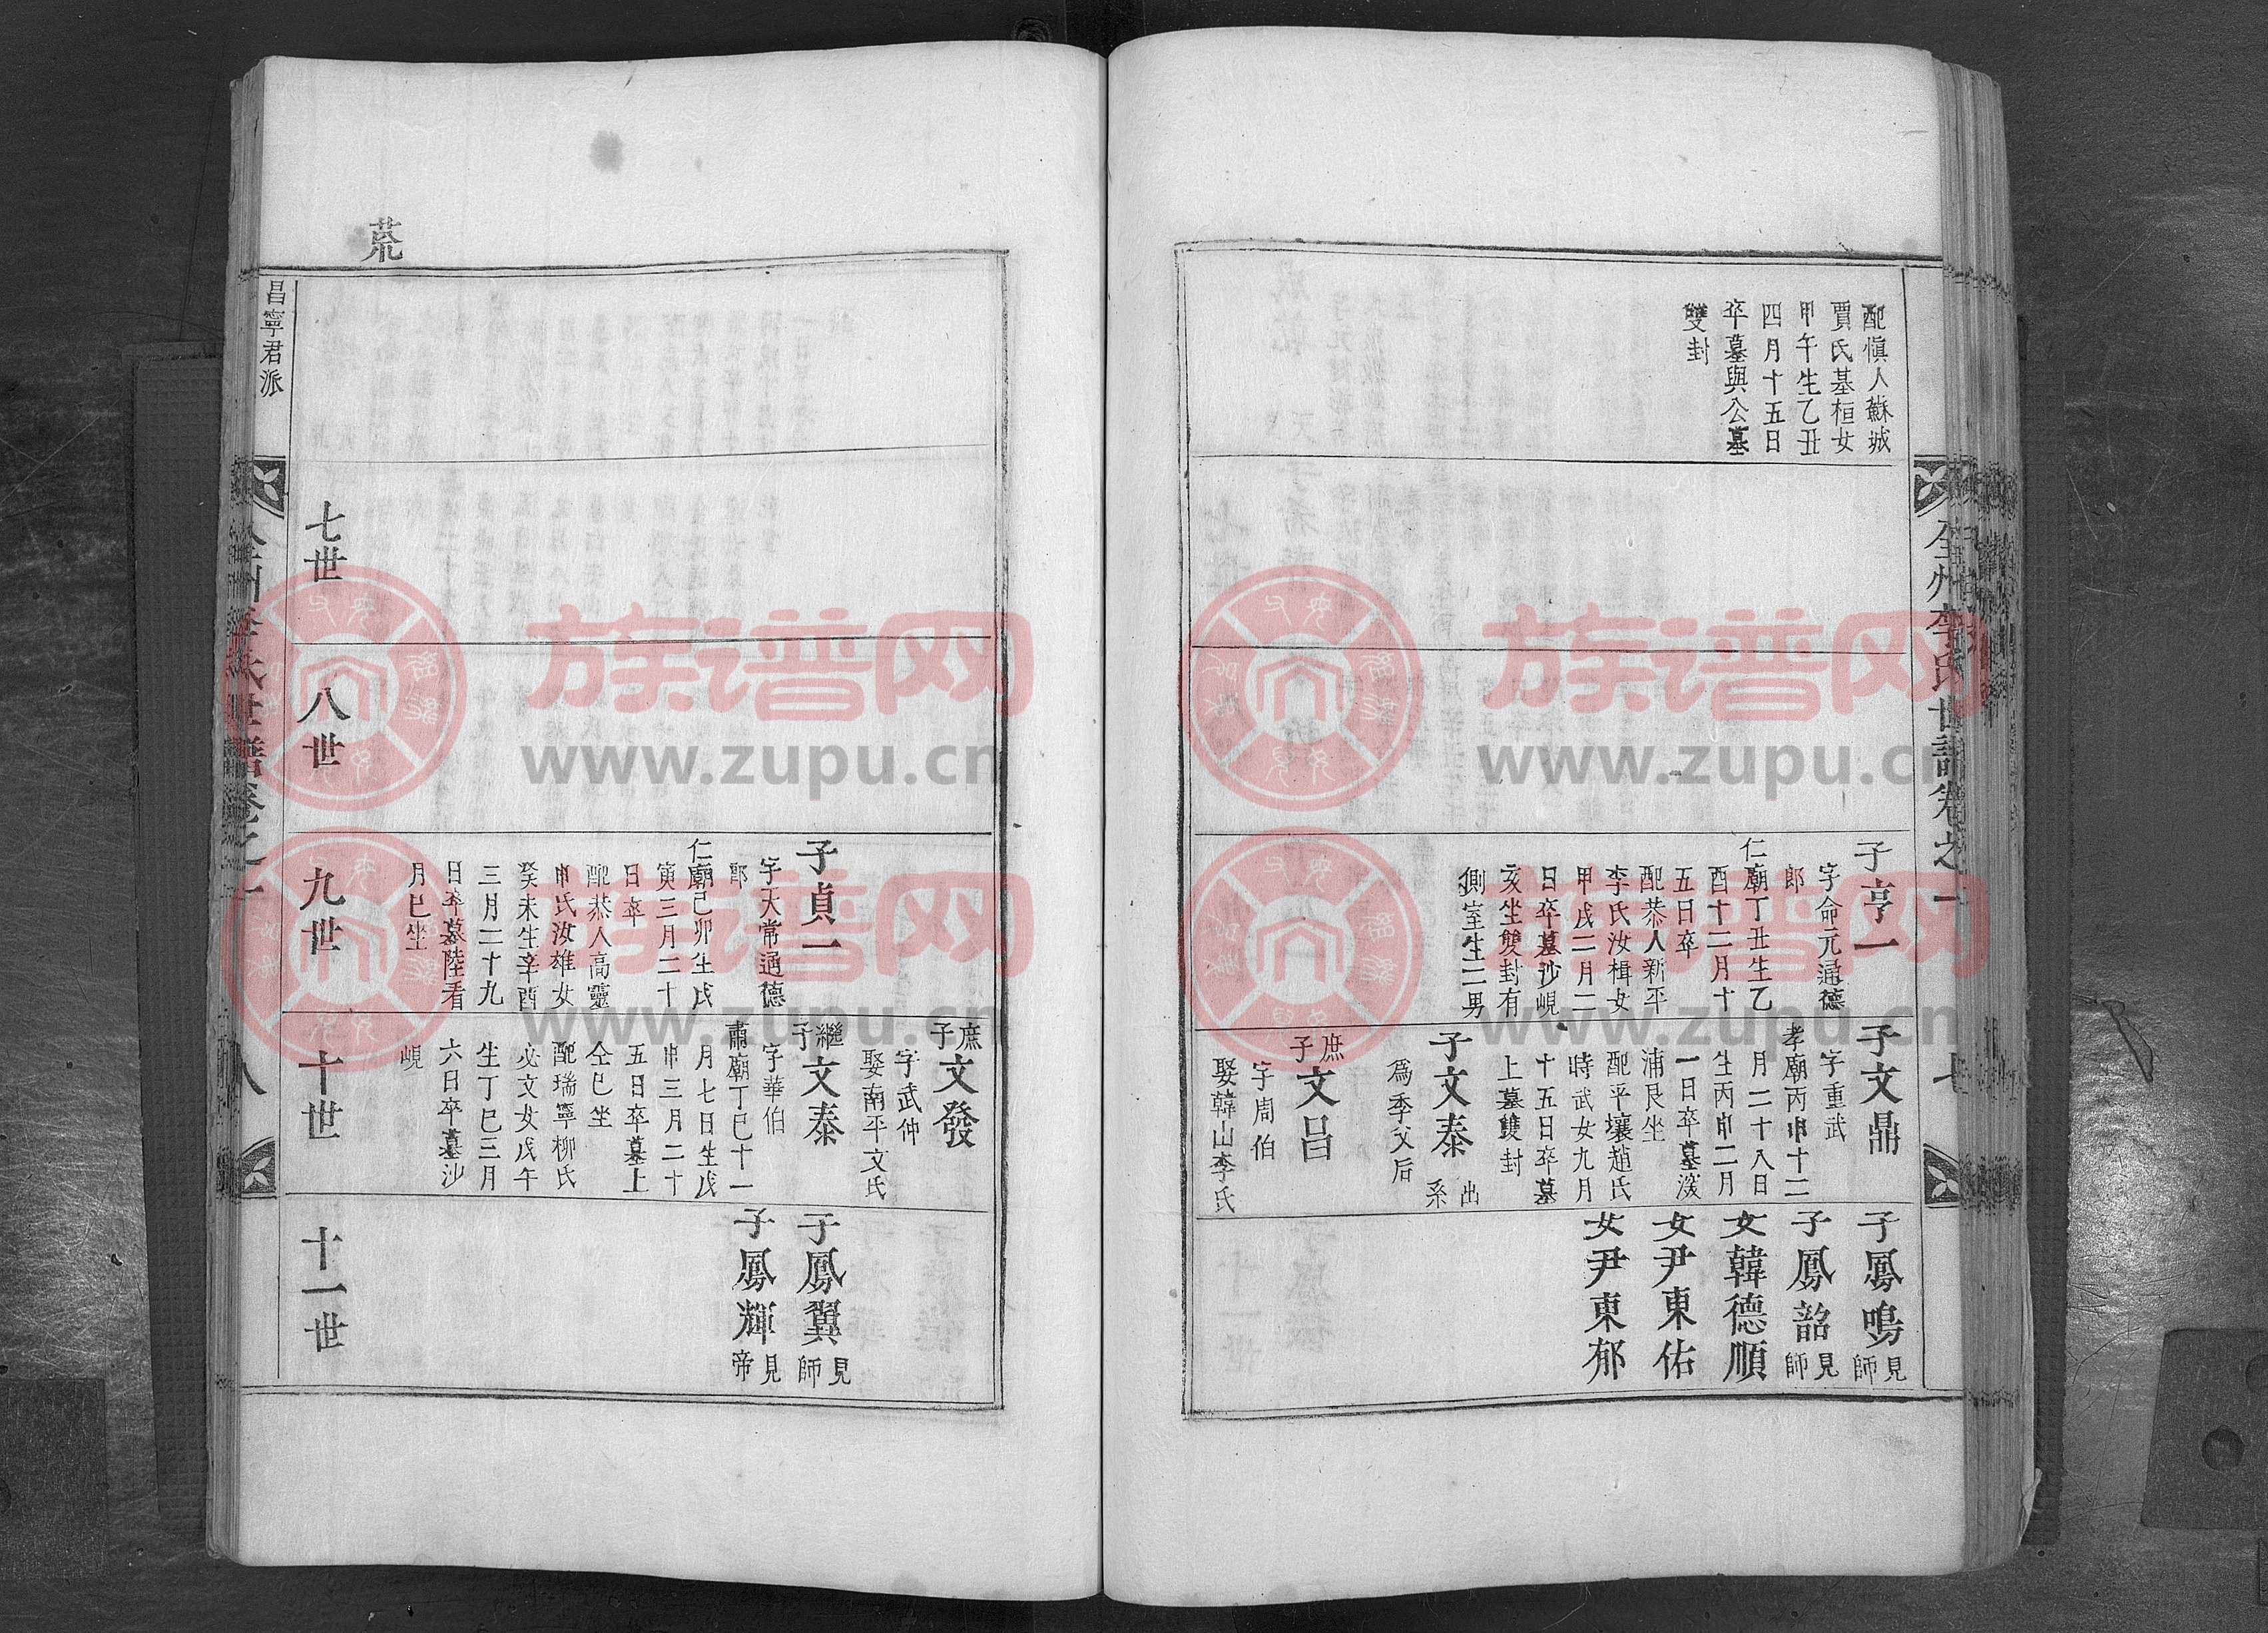 全州李氏世譜卷之一
七
配愼人蘇城
賈氏基桓女
甲午生乙丑
四月十五日
卒墓與公墓
雙封
子亨一
字命元通德
郎
仁廟丁丑生乙
酉十二月十
五日卒
配恭人新平
李氏汝楫女
甲戌二月二
日卒墓沙峴
亥坐雙封有
側室生二男
子文鼎
字重武
孝廟丙申十二
月二十八日
生丙申二月
一日卒墓淺
浦艮坐
配平壤趙氏
時武女九月
十五日卒墓
上墓雙封
子文泰出系
爲季父后
庶子文呂
字周伯
娶韓山李氏
子鳳鳴見師
子鳳韶見師
女韓德順
女尹東佑
女尹東郁
庶子文發
字武仲
娶南平文氏
子貞一
字天常通德
郎
仁廟己卯生戊
寅三月二十
日卒
配恭人高靈
申氏汝雄女
癸未生辛酉
三月二十九
日卒墓陸看
月巳坐
繼子文泰
字華伯
肅廟丁巳十一
月七日生戊
申三月二十
五日卒墓上
仝巳坐
配瑞寧柳氏
必文女戊午
生丁巳三月
六日卒墓沙
峴
子鳳翼見師
子鳳輝見帝
七世
八世
九世
十世
十一世
荒
昌寧君派
八
族谱网
www.zupu.cn
族谱网
www.zupu.cn
族谱网
www.zupu.cn
族谱网
www.zupu.cn